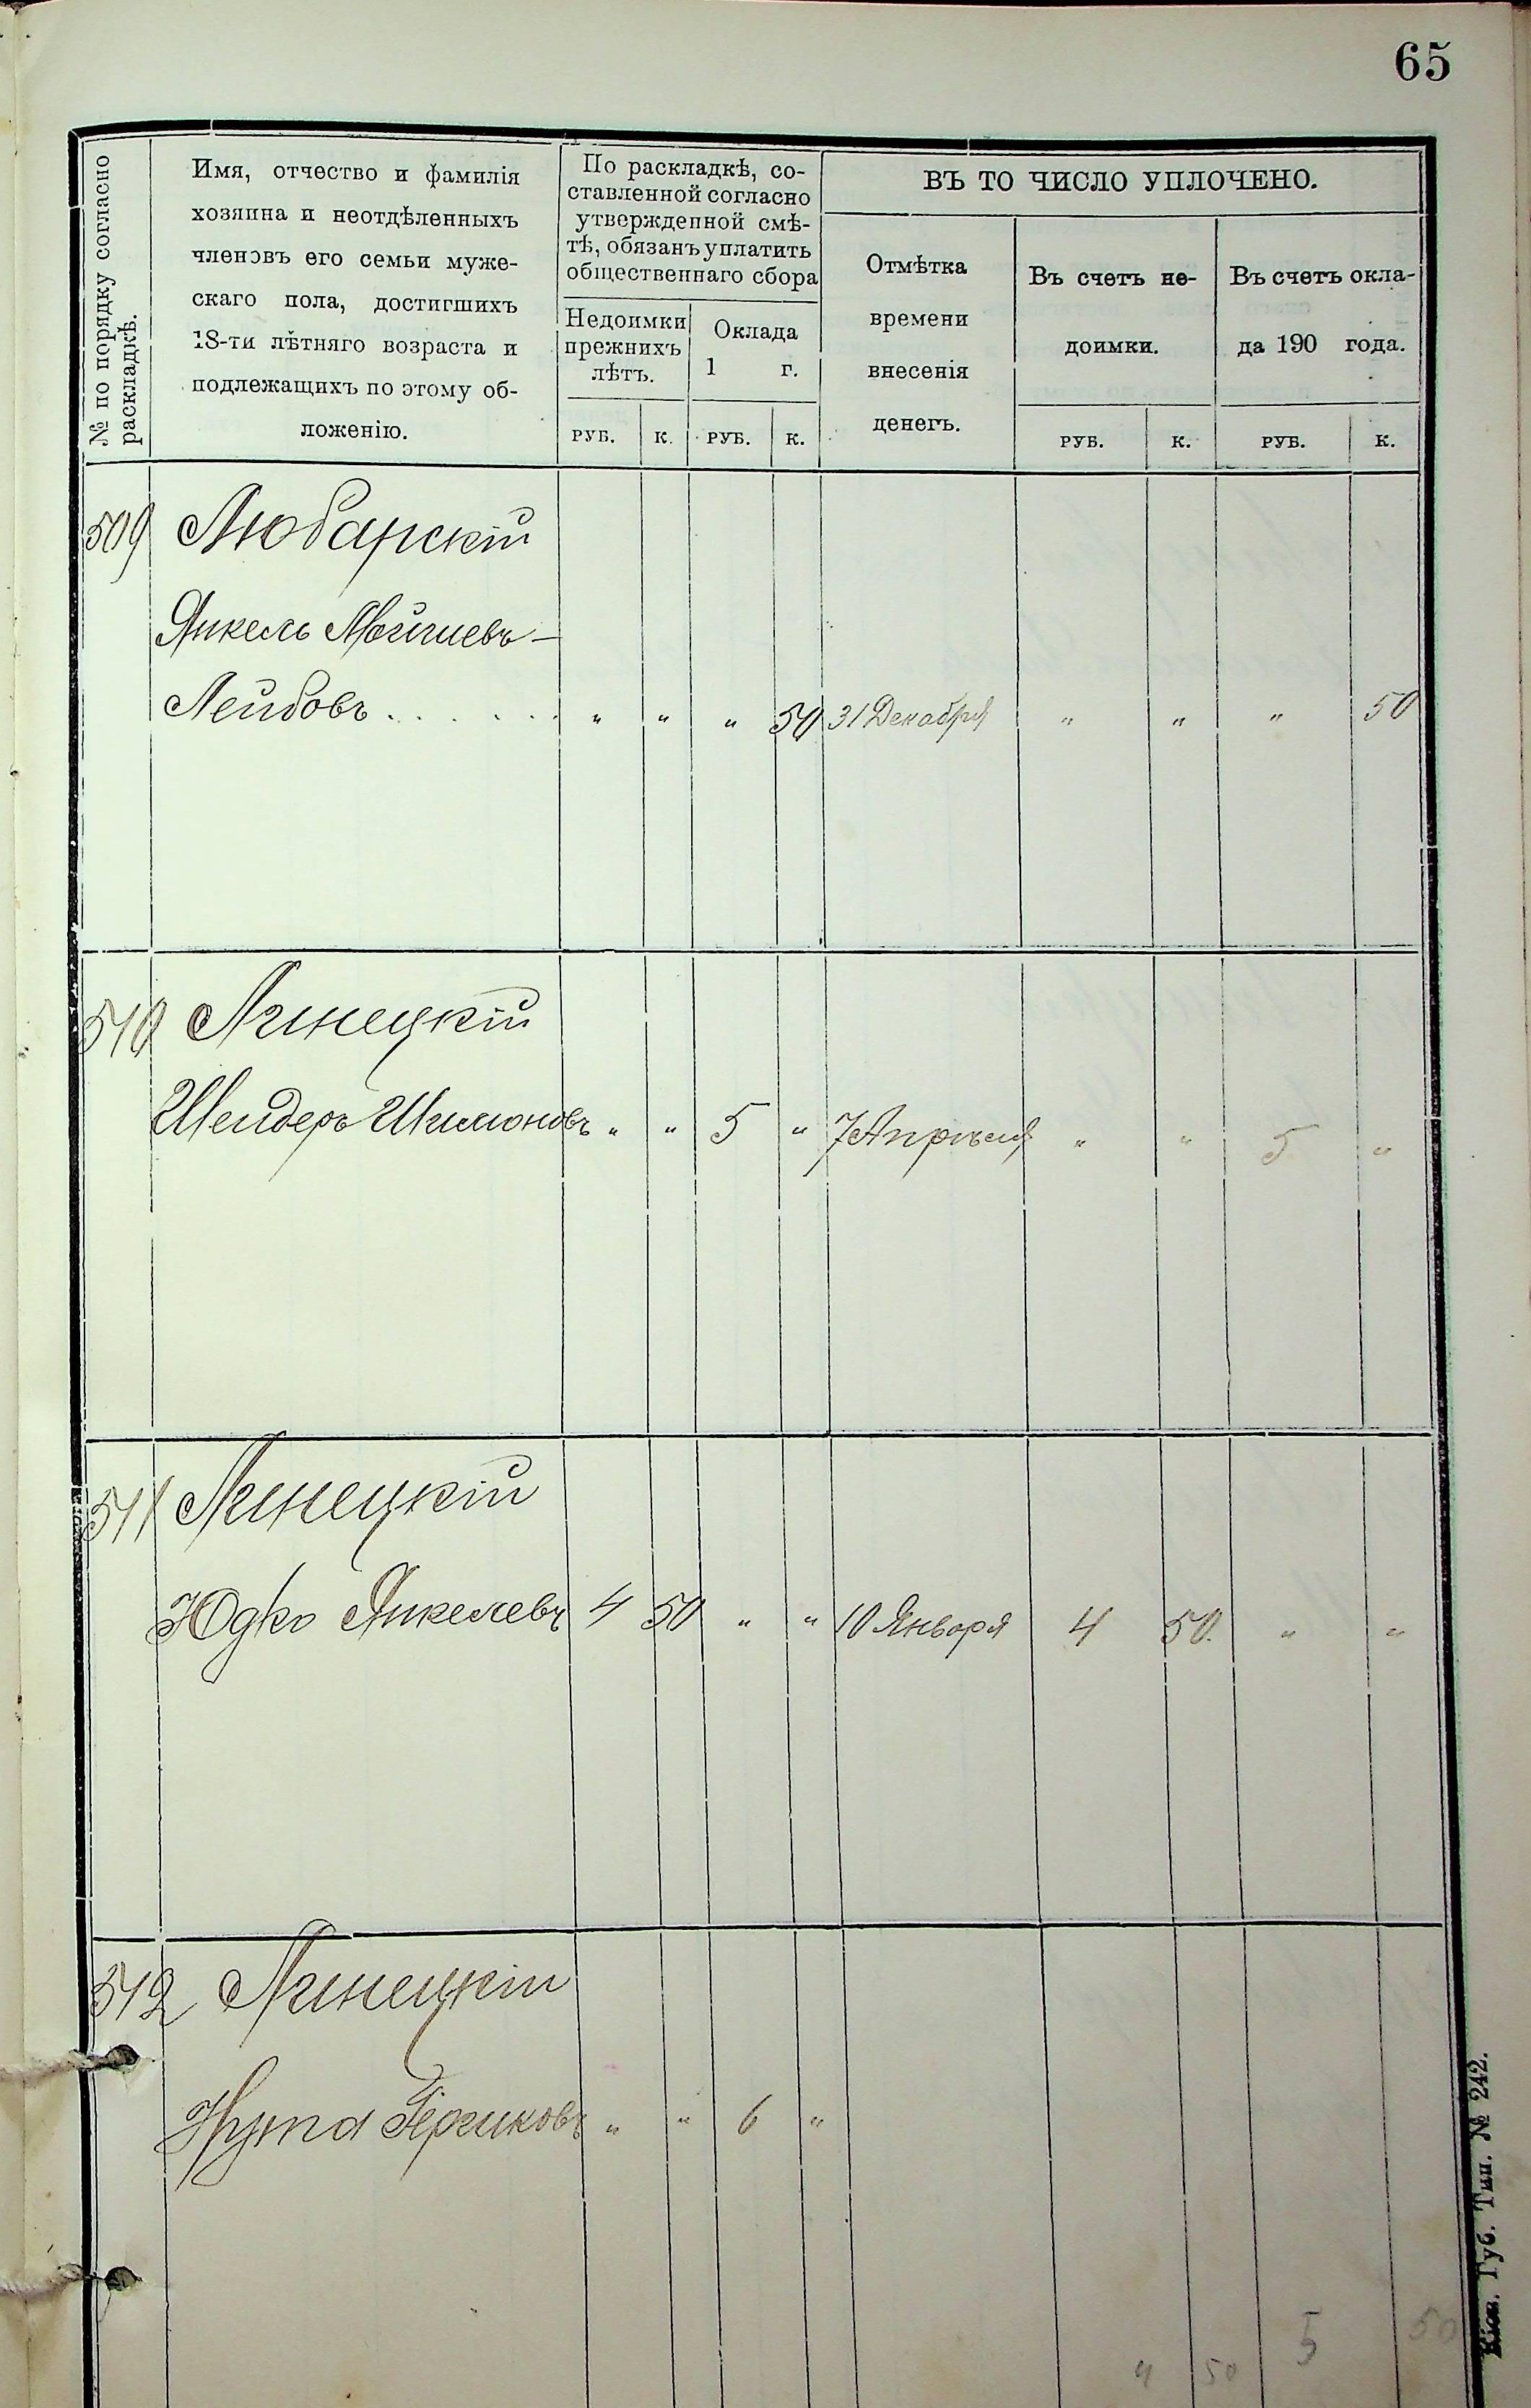 65
№ по порядку согласно
раскладкѣ.
Имя, отчество и фамилія
хозяина и неотдѣленныхъ
членовъ его семьи муже-
скаго пола, достигшихъ
18-ти лѣтняго возраста и
подлежащихъ по этому об-
ложенію.
По раскладкѣ, со-
ставленной согласно
утвержденной смѣ-
тѣ, обязанъ уплатить
общественнаго сбора
Недоимки
прежнихъ
лѣтъ.
Оклада
1 г.
ВЪ ТО ЧИСЛО УПЛОЧЕНО.
Отмѣтка
времени
внесенія
денегъ.
Въ счетъ не-
доимки.
Въ счетъ окла-
да 190 года.
РУБ. К. РУБ. К. РУБ. К. РУБ. К.
509 Любарскій
Янкель
Лейбовъ . . . . . . „ „ „ 50 31 Декабря „ „ „ 50
510 Линецкій
Шендеръ Шимоновъ „ „ 5 „ 7 Апрѣля „ „ 5 „
511 Линецкій
Юдко Янкелевъ 4 50 „ „ 10 Января 4 50. „ „
512 Линецкій
Нута Гершковъ „ „ 6 „
4 50 5 50
Кіев. Губ. Тип. № 242.